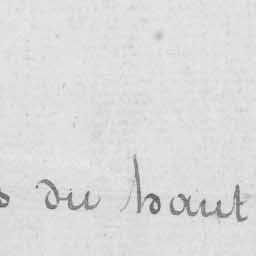 du haut